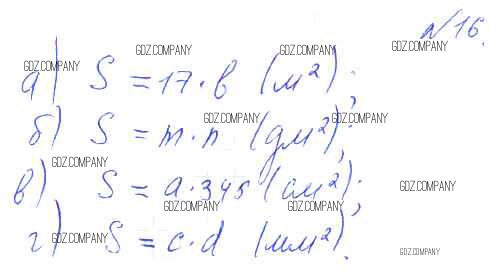 №16.
GDZ.COMPANY GDZ.COMPANY GDZ.COMPANY
GDZ.COMPANY
а) S = 17·в (м²);
GDZ.COMPANY GDZ.COMPANY
б) S = m·n (дм²);
GDZ.COMPANY
в) S = a·345 (см²);
GDZ.COMPANY
GDZ.COMPANY GDZ.COMPANY
г) S = c·d (мм²).
GDZ.COMPANY
GDZ.COMPANY